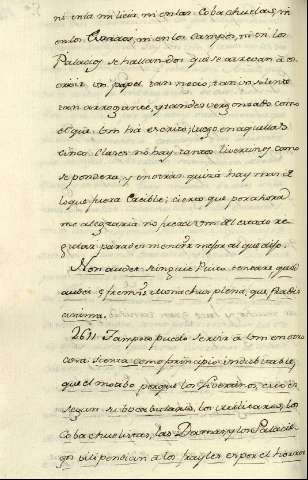 ni en la milicia, ni en las Cobachuelas, ni
en los ni en los Campos, ni en los
Palacios se hallan dos que se atrevan a es-
crivir un papel tan necio, tan insolente
tan arrogante, y tan desvergonzado como
el que Vm ha escrito; luego en aquellas
cinco clases no hay tantos como
se pondera, y en otras quizá hay mas de
lo que fuera creible; cierto que por ahora
me alegraria no fuese Vm del estado re-
gular para desmentir mejor al que dijo:
Non audet stingius Pluto tentare quod
audet effrenis Monachus plena que fraudis
anima.
2611. Tampoco puedo servir a Vm en otra
cosa sienta como principio indubitable,
que el motibo porque los
segun su bocabulario, los militares, los
Cobachuelistas, las Damas, y los Palacie-
gos vilipendian a los frayles es por el horror